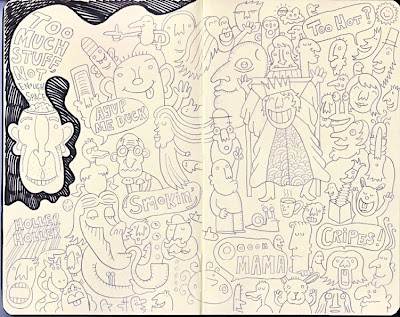 TOO
MUCH
STUFF
NOT
ENOUGH
SPACE
AYUP
ME DUCK
SMOKIN'
HOLLER
HOLLER
TOO HOT?
CRIPES!
OOOH
MAMA